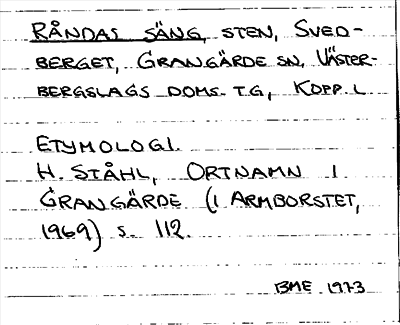 RÅNDAS SÄNG, STEN, SVED-
BERGET, GRANGÄRDE SN, VÄSTER-
BERGSLAGS DOMS. T.G, KOPP. L
ETYMOLOGI.
H. STÅHL, ORTNAMN I
GRANGÄRDE (I ARMBORSTET,
1969) S. 112.
BME 1973